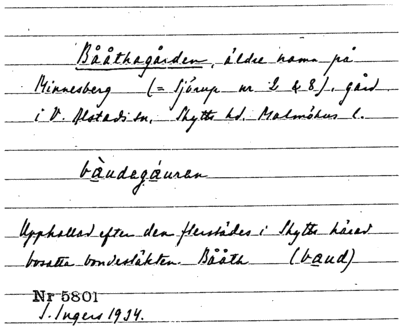 Bååthagården, äldre namn på
Minnesberg (= Sjörup nr 2 & 8), gård
i V. Alstads sn, Skytts hd. Malmöhus l.
bàudagáuran
Uppkallad efter den flerstädes i Skytts härad
bosatta bondesläkten Bååth (baud)
Nr 5801
I. Ingers 1934.